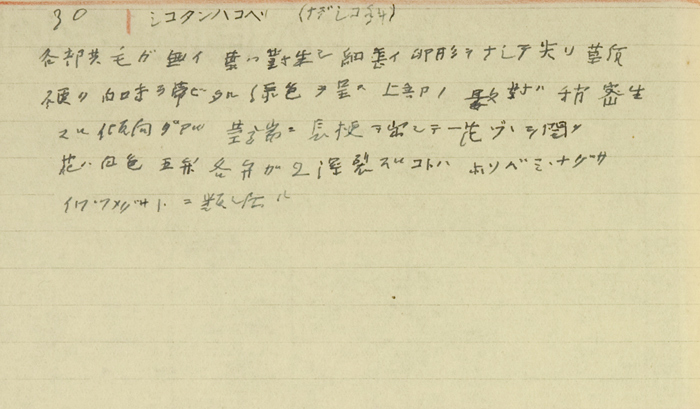 30 シコタンハコベ (ナデシコ科)
各部共毛ガ無イ 葉ハ對生シ 細長イ卵形ヲナシテ尖リ 葉質
硬ク 白味ヲ帯ビタル緑色ヲ呈ス 上部ノ 数対ガ稍密生
スル傾向ガアル 莖端ニ長梗ヲ出シテ一花ヅヽヲ開ク
花ハ白色 五弁 各弁ガ2深裂スルコトハ
イワツメクサトニ類似